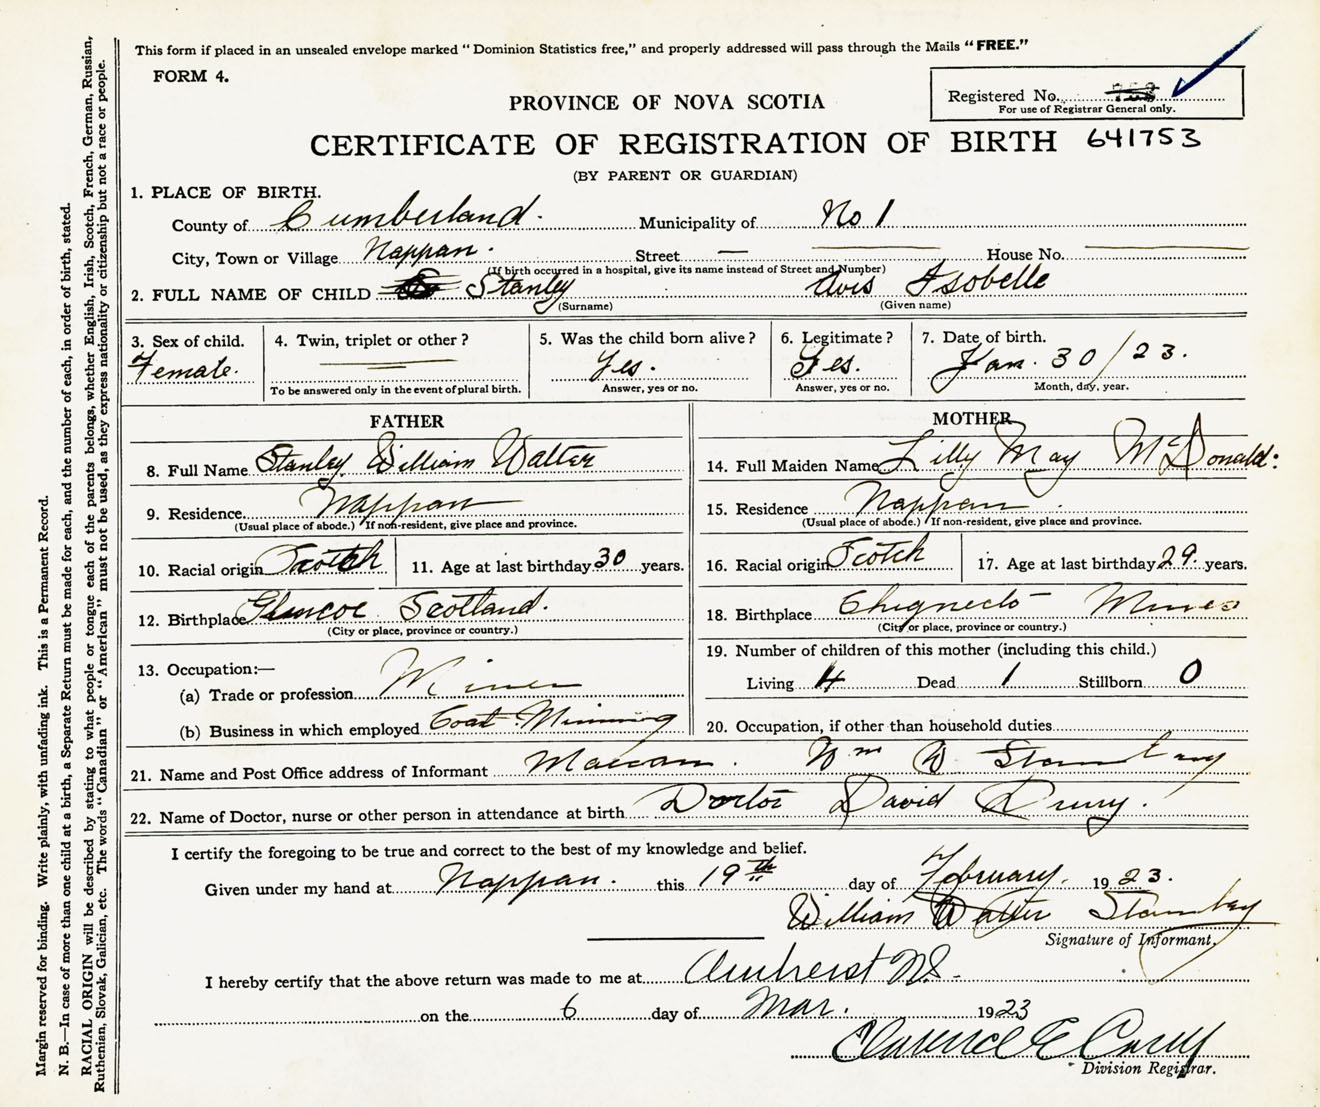 This form if placed in an unsealed envelope marked “Dominion Statistics free,” and properly addressed will pass through the Mails “FREE.”
FORM 4.
Registered No.
For use of Registrar General only.
PROVINCE OF NOVA SCOTIA
CERTIFICATE OF REGISTRATION OF BIRTH 641753
(BY PARENT OR GUARDIAN)
1. PLACE OF BIRTH.
County of Cumberland. Municipality of No 1
City, Town or Village Nappan. Street — House No.
(If birth occurred in a hospital, give its name instead of Street and Number)
2. FULL NAME OF CHILD Stanley Avis Isobelle
(Surname) (Given name)
3. Sex of child. 4. Twin, triplet or other? 5. Was the child born alive? 6. Legitimate? 7. Date of birth.
Female. Yes. Yes. Jan. 30/23.
To be answered only in the event of plural birth. Answer, yes or no. Answer, yes or no. Month, day, year.
FATHER
8. Full Name Stanley William Walter
9. Residence Nappan
(Usual place of abode.) If non-resident, give place and province.
10. Racial origin Scotch 11. Age at last birthday 30 years.
12. Birthplace Glencoe Scotland.
(City or place, province or country.)
13. Occupation:—
(a) Trade or profession Miner
(b) Business in which employed Coal Minning
MOTHER
14. Full Maiden Name Lilly May McDonald:
15. Residence Nappan
(Usual place of abode.) If non-resident, give place and province.
16. Racial origin Scotch 17. Age at last birthday 29. years.
18. Birthplace Chignecto Mines
(City or place, province or country.)
19. Number of children of this mother (including this child.)
Living 4 Dead 1 Stillborn 0
20. Occupation, if other than household duties
21. Name and Post Office address of Informant Maccan. Wm W Stanley
22. Name of Doctor, nurse or other person in attendance at birth Doctor David Drury.
I certify the foregoing to be true and correct to the best of my knowledge and belief.
Given under my hand at Nappan. this 19th day of February. 1923.
William Walter Stanley
Signature of Informant.
I hereby certify that the above return was made to me at Amherst N.S.
on the 6 day of Mar. 1923
Clarence E
Division Registrar.
Margin reserved for binding. Write plainly, with unfading ink. This is a Permanent Record.
N. B.—In case of more than one child at a birth, a Separate Return must be made for each, and the number of each, in order of birth, stated.
RACIAL ORIGIN will be described by stating to what people or tongue each of the parents belongs, whether English, Irish, Scotch, French, German, Russian,
Ruthenian, Slovak, Galician, etc. The words “Canadian” or “American” must not be used, as they express nationality or citizenship but not a race or people.